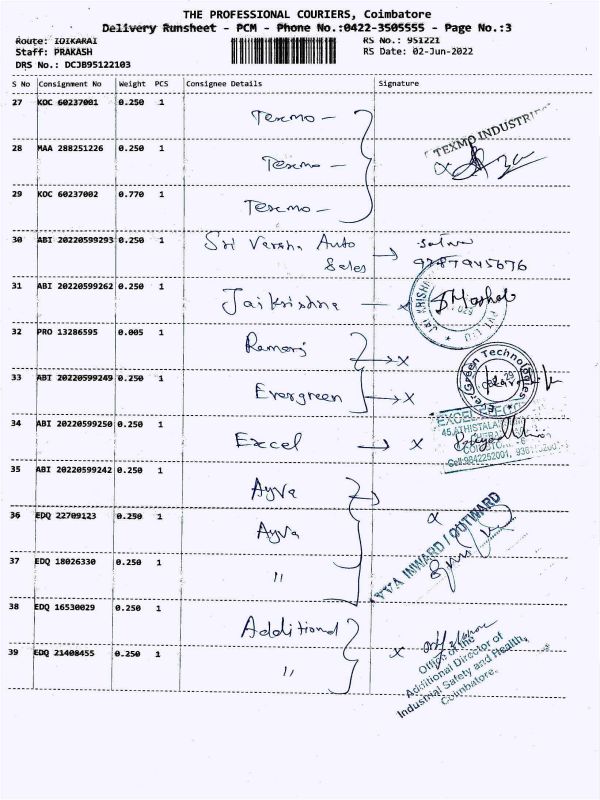 THE PROFESSIONAL COURIERS, Coimbatore
Delivery Runsheet - PCM - Phone No.:0422-3505555 - Page No.:3
Route: IDIKARAI
RS No.: 951221
Staff: PRAKASH
RS Date: 02-Jun-2022
DRS No.: DCJB95122103
S No Consignment No Weight PCS Consignee Details Signature
27 KOC 60237001 0.250 1 Texmo -
28 MAA 288251226 0.250 1 Texmo -
TEXMO INDUSTRIE
29 KOC 60237002 0.770 1 Texmo -
30 ABI 20220599293 0.250 1 Sri Varsha Auto Sales
9787945676
31 ABI 20220599262 0.250 1 Jai Krishna
JAI KRISHN PVT. LTD
32 PRO 13286595 0.005 1
33 ABI 20220599249 0.250 1 Evergreen X
EverGreen Technologies
34 ABI 20220599250 0.250 1 Excel X
EXCEL
Cell:9842252001,
35 ABI 20220599242 0.250 1 Ayva
36 EDQ 22709123 0.250 1 Ayva
YVA INWARD / OUTWARD
37 EDQ 18026330 0.250 1 "
38 EDQ 16530029 0.250 1 Additional
39 EDQ 21408455 0.250 1 "
Office of the
Additional Director of
Industrial Safety and Health,
Coimbatore.